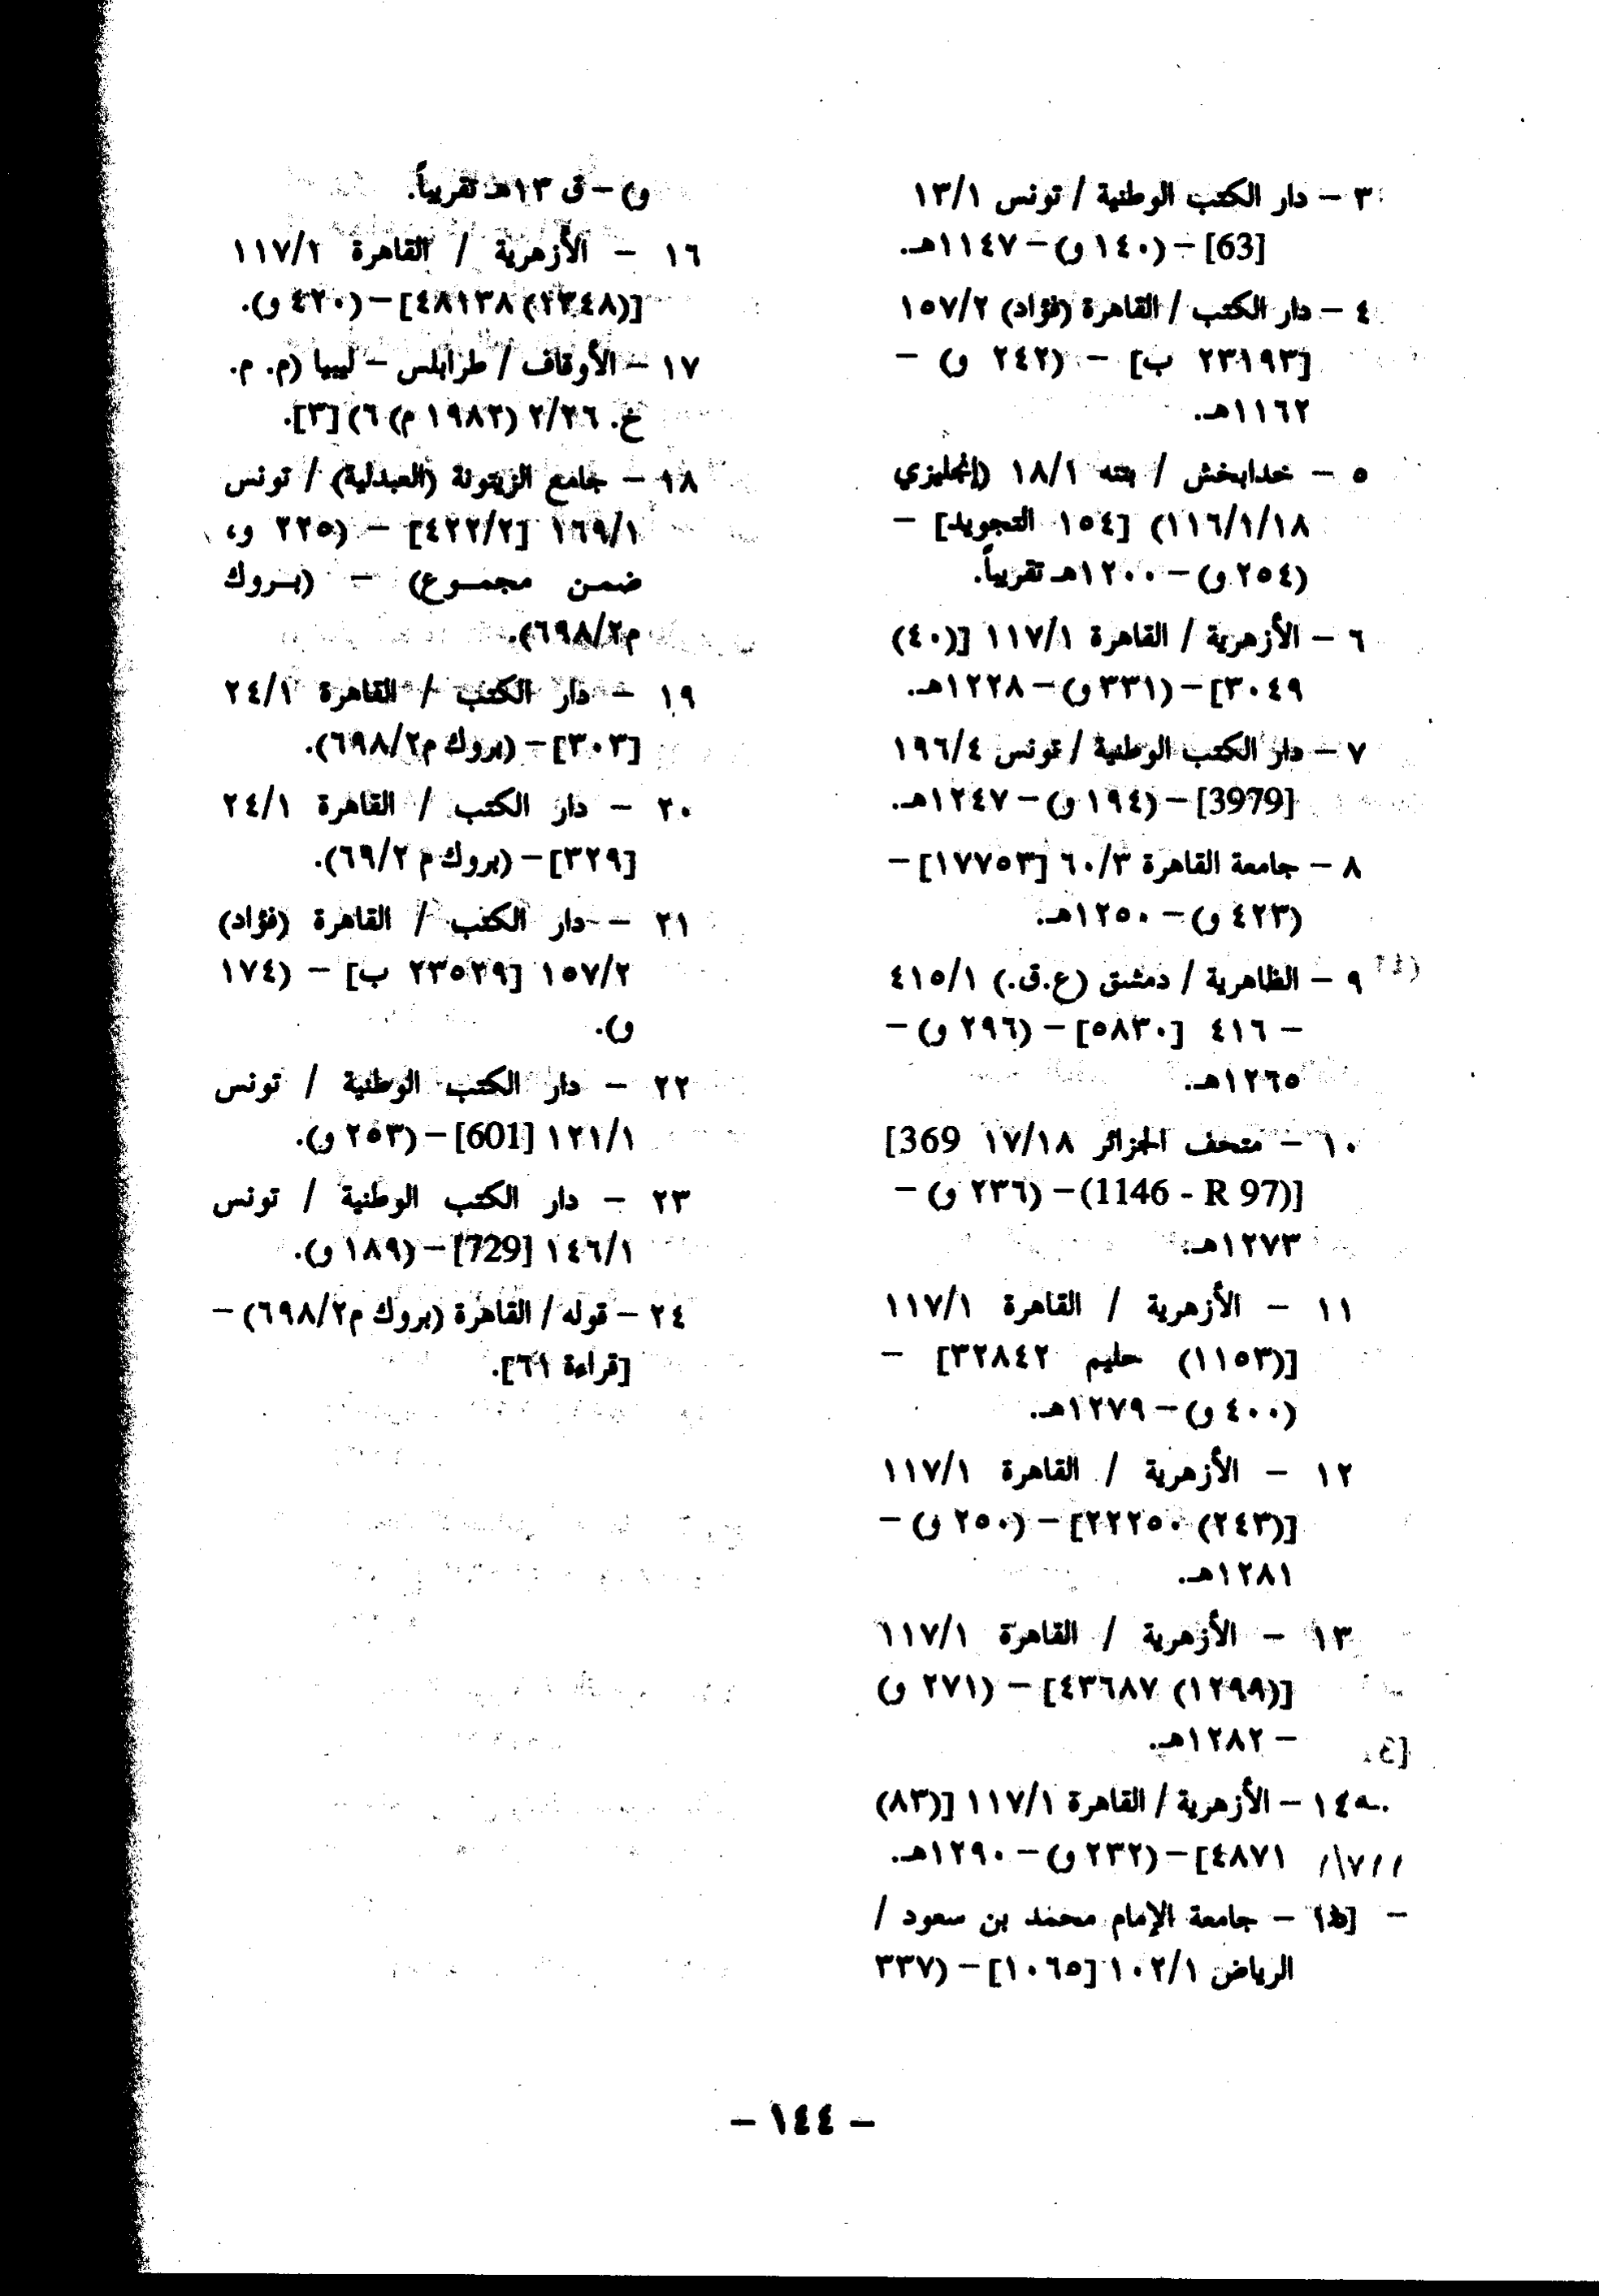 ٣ – دار الكتب الوطنية / تونس ١٣/١
[63] – (١٤٠ و) – ١١٤٧هـ.
٤ – دار الكتب / القاهرة (فؤاد) ١٥٧/٢
[٢٣١٩٣ ب] – (٢٤٢ و) –
١١٦٢هـ.
٥ – خدابخش / بتنه ١٨/١ (إنجليزي
١١٦/١/١٨) [١٥٤ التجويد] –
(٢٥٤ و) – ١٢٠٠هـ تقريباً.
٦ – الأزهرية / القاهرة ١١٧/١ [(٤٠)
٣٠٤٩] – (٣٣١ و) – ١٢٢٨هـ.
٧ – دار الكتب الوطنية / تونس ١٩٦/٤
[3979] – (١٩٤ و) – ١٢٤٧هـ.
٨ – جامعة القاهرة ٦٠/٣ [١٧٧٥٣] –
(٤٢٣ و) – ١٢٥٠هـ.
٩ – الظاهرية / دمشق (ع.ق.) ٤١٥/١
– ٤١٦ [٥٨٣٠] – (٢٩٦ و) –
١٢٦٥هـ.
١٠ – متحف الجزائر ١٧/١٨ [369
(1146 - R 97)] – (٢٣٦ و) –
١٢٧٣هـ.
١١ – الأزهرية / القاهرة ١١٧/١
[(١١٥٣) حليم ٣٢٨٤٢] –
(٤٠٠ و) – ١٢٧٩هـ.
١٢ – الأزهرية / القاهرة ١١٧/١
[(٢٤٣) ٢٢٢٥٠] – (٢٥٠ و) –
١٢٨١هـ.
١٣ – الأزهرية / القاهرة ١١٧/١
[(١٢٩٩) ٤٣٦٨٧] – (٢٧١ و)
– ١٢٨٢هـ.
١٤ – الأزهرية / القاهرة ١١٧/١ [(٨٣)
٤٨٧١] – (٢٣٢ و) – ١٢٩٠هـ.
– جامعة الإمام محمد بن سعود /
الرياض ١٠٢/١ [١٠٦٥] – (٣٣٧
و) – ق ١٣هـ تقريباً.
١٦ – الأزهرية / القاهرة ١١٧/٢
[(٢٣٤٨) ٤٨١٣٨] – (٤٢٠ و).
١٧ – الأوقاف / طرابلس – ليبيا (م. م.
خ. ٢/٢٦ (١٩٨٢ م) ٦) [٣].
١٨ – جامع الزيتونة (العبدلية) / تونس
١٦٩/١ [٤٢٢/٢] – (٢٢٥ و،
ضمن مجموع) – (بروك
م٦٩٨/٢).
١٩ – دار الكتب / القاهرة ٢٤/١
[٣٠٣] – (بروك م٦٩٨/٢).
٢٠ – دار الكتب / القاهرة ٢٤/١
[٣٢٩] – (بروك م ٦٩/٢).
٢١ – دار الكتب / القاهرة (فؤاد)
١٥٧/٢ [٢٣٥٢٩ ب] – (١٧٤
و).
٢٢ – دار الكتب الوطنية / تونس
١٢١/١ [601] – (٢٥٣ و).
٢٣ – دار الكتب الوطنية / تونس
١٤٦/١ [729] – (١٨٩ و).
٢٤ – قوله / القاهرة (بروك م٦٩٨/٢) –
[قراءة ٦١].
– ١٤٤ –